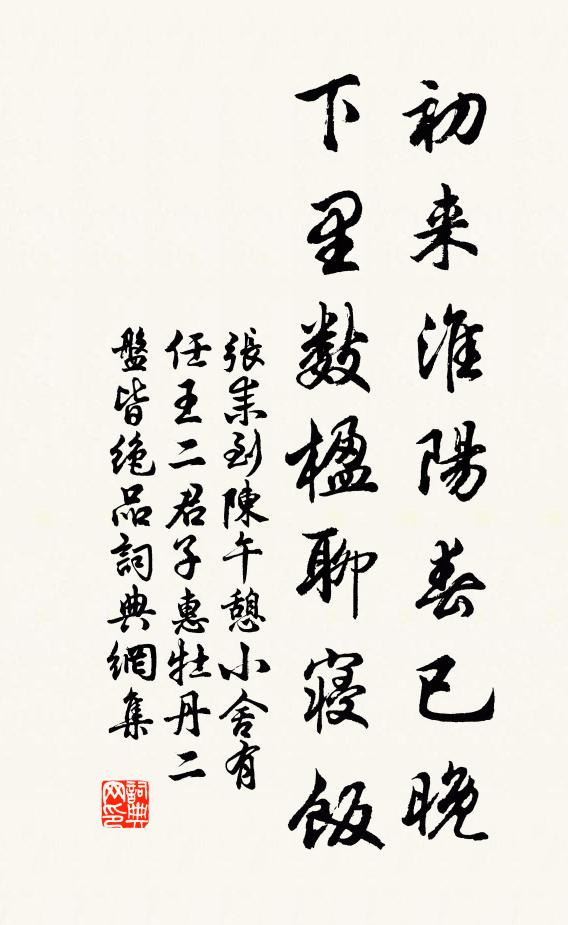 初来淮陽春已晚
下里数楹聊寝飯
張耒到陳午憩小舍有
任王二君子惠牡丹二
盤皆绝品詞典網集
詞典
网印